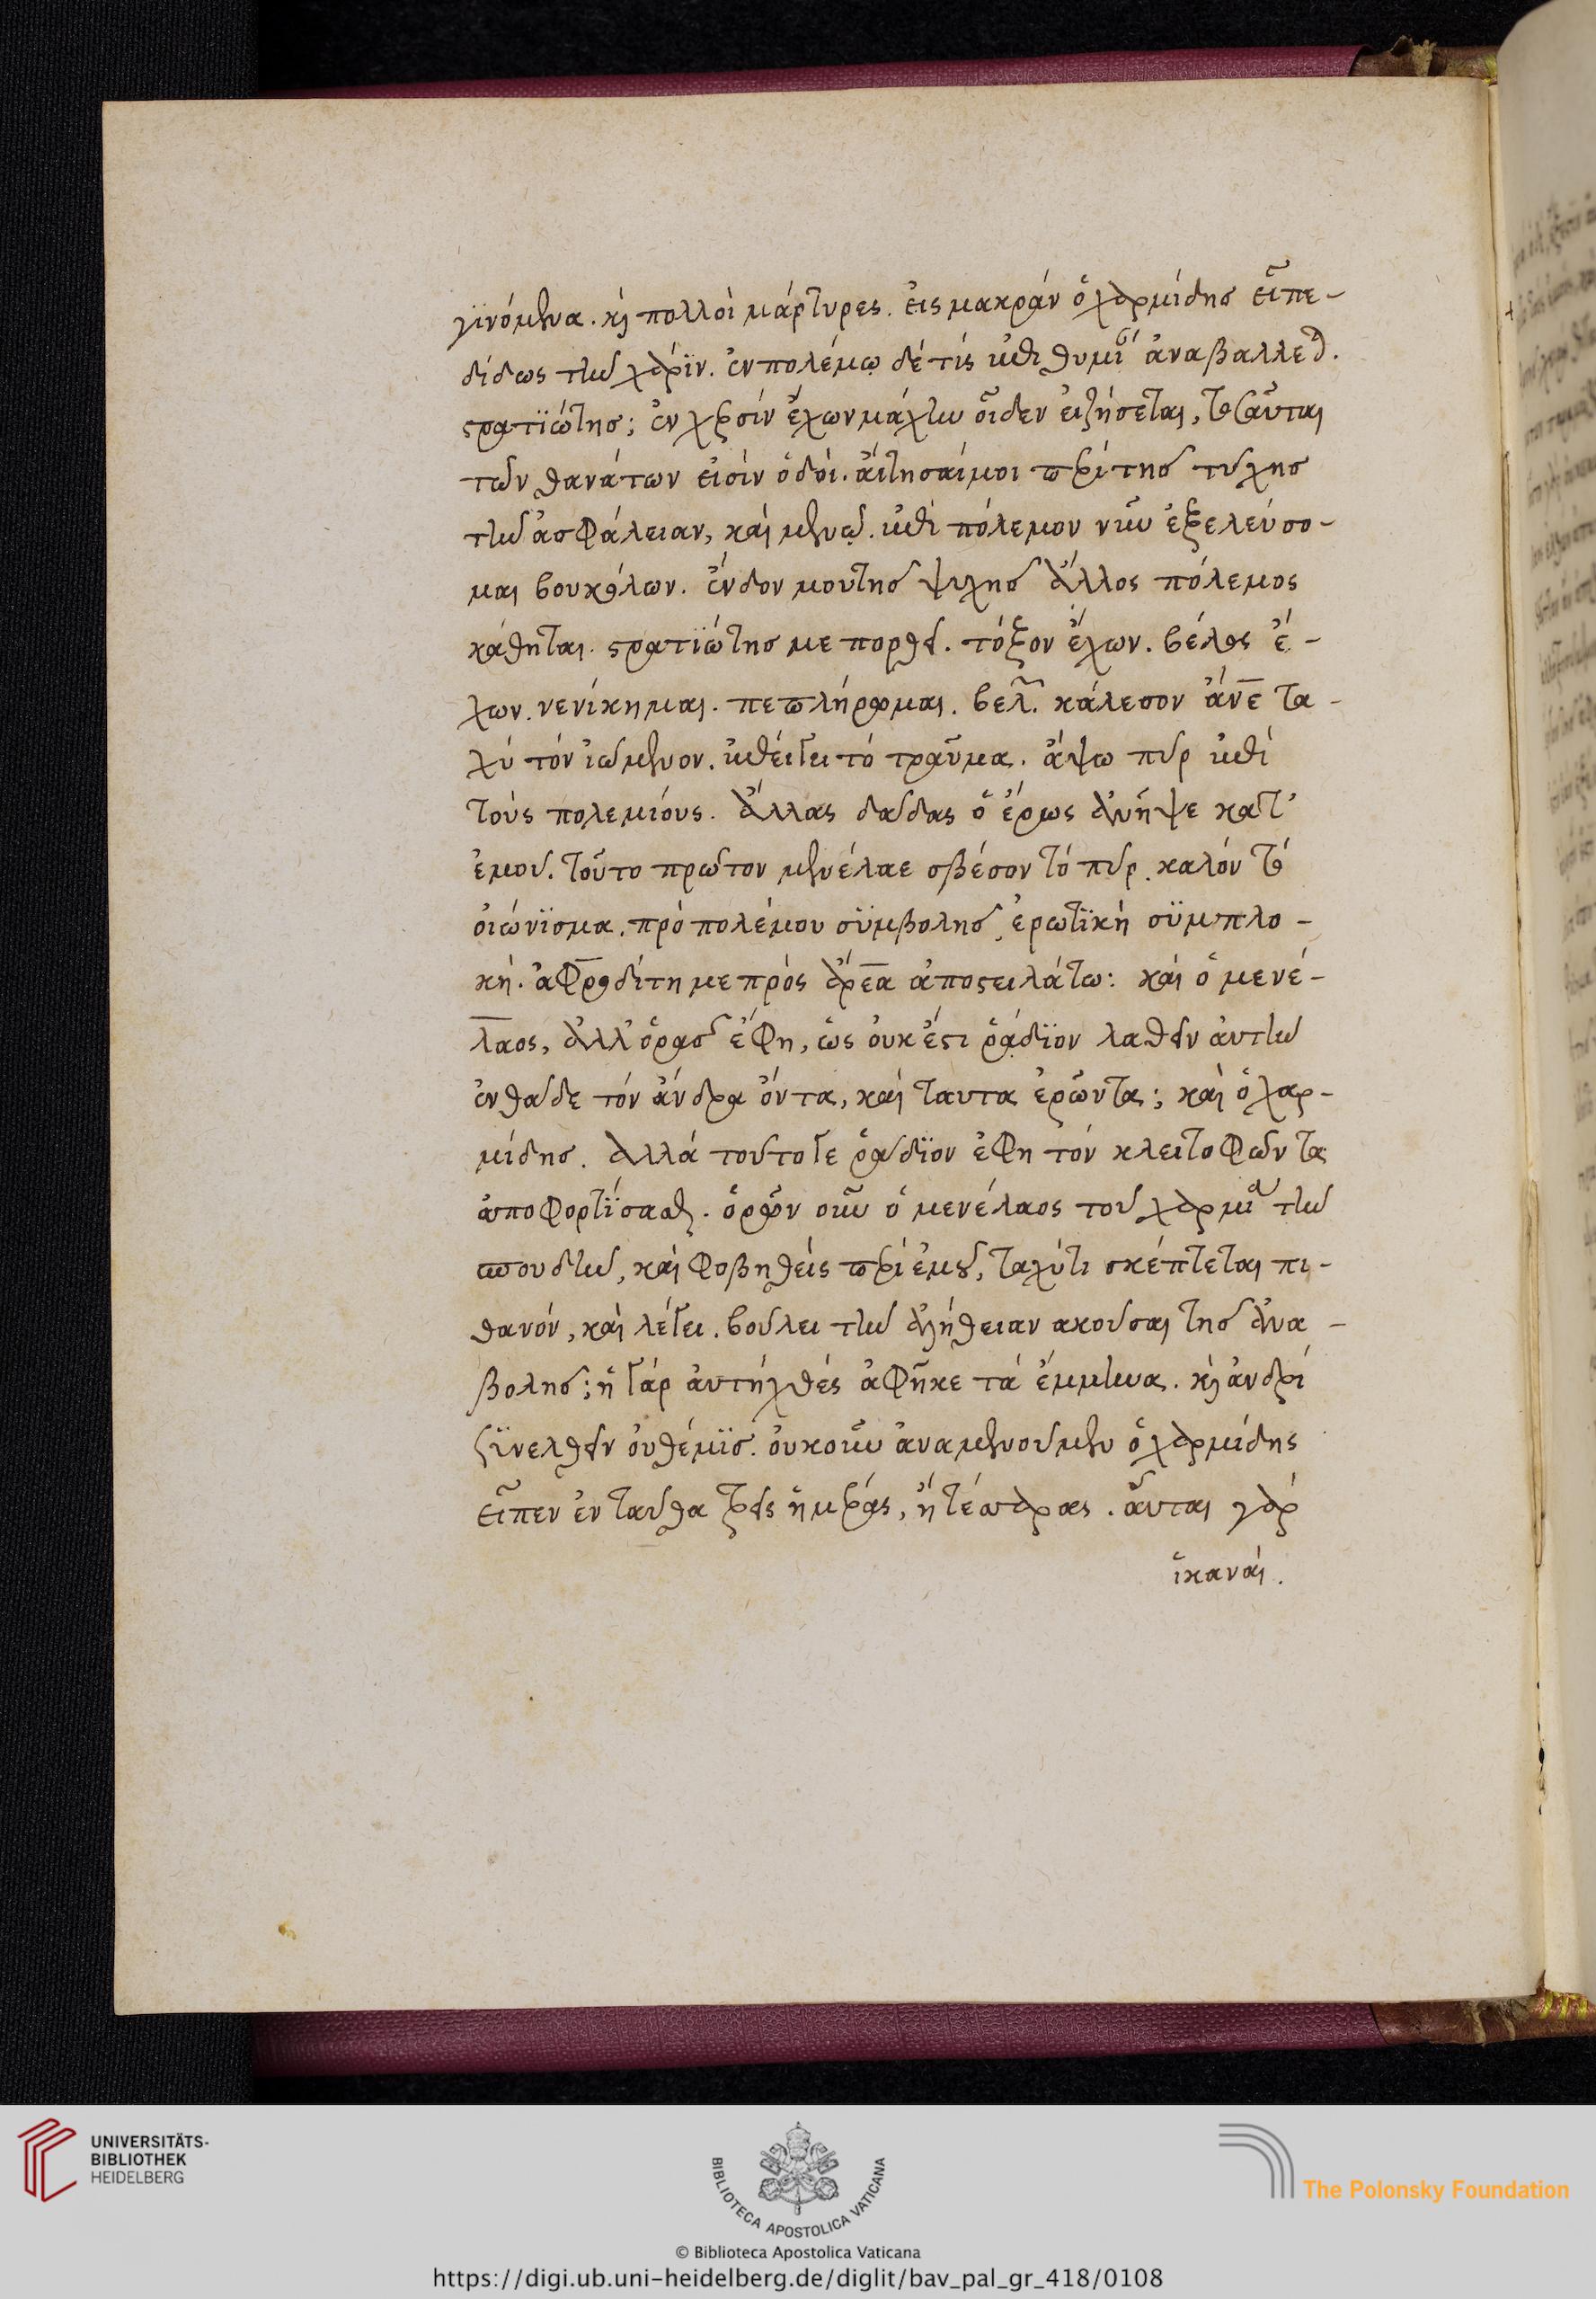 γϊνόμενα. κὶ πολλοὶ μάρτυρες. ἐις μακράν ὁ χαρμίδησ εἶπε-
δίδως τὴν χάρϊν. ἐν πολέμῳ δέ τίς ἐπιθυμί ἀναβαλλεται.
στρατϊώτησ; ἐν χερσίν ἔχων μάχην οἶδεν εἰ ζήσεται, τοσαῦται
τῶν θανάτων εἰσίν ὁδοί. ἄιτησαί μοι περί τῆσ τύχησ
τὴν ἀσφάλειαν, καὶ μενῶ. ἐπὶ πόλεμον νῦν ἐξελεύσο-
μαι βουκόλων. ἔνδον μου τῆσ ψυχῆσ ἄλλος πόλεμος
κάθηται. στρατϊώτησ με πορθεῖ. τόξον ἔχων. βέλος ἔ-
χων. νενίκημαι. πεπλήρωμαι. βελ. κάλεσον ἄνε τα-
χύ τόν ἰώμενον. ἐπέιγει τό τραῦμα. ἅψω πῦρ ἐπί
τοὺς πολεμίους. ἄλλας δᾷδας ὁ ἔρως ἀνῆψε κατ'
ἐμοῦ. τοῦτο πρῶτον μενέλαε σβέσον τό πῦρ. καλόν τό
οἰώνϊσμα. πρὸ πολέμου σϋμβολῆσ ἐρωτϊκὴ σϋμπλο-
κή. ἀφροδίτη με πρὸς ἄρεα ἀποστειλάτω: καὶ ὁ μενέ-
λαος, ἀλλ' ὁρᾷσ ἔφη, ὡς ὀυκ ἔστι ῥᾴδϊον λαθεῖν ἀυτὴν
ἐνθάδε τόν ἄνδρα ὄντα, καὶ ταῦτα ἐρῶντα; καὶ ὁ χαρ-
μίδησ. ἀλλά τοῦτο γε ῥᾴδϊον ἔφη τόν κλειτοφῶντα
ἀποφορτϊσασθαι. ὁρῶν οὖν ὁ μενέλαος τοῦ χαρμι τὴν
σπουδὴν, καὶ φοβηθεὶς περὶ ἐμοῦ, ταχύ τι σκέπτεται πι-
θανόν, καὶ λέγει. βούλει τὴν ἀλήθειαν ακοῦσαι τῆσ ἀνα-
βολῆσ; ἡ γάρ ἀυτὴ χθές ἀφῆκε τά ἔμμηνα. κὶ ἀνδρί
σϋνελθεῖν ὀυ θέμϊσ. ὀυκοῦν ἀναμενοῦμεν ὁ χαρμίδης
εἶπεν ἐνταῦθα τρεῖς ἡμέρας, ἤ τέσσαρας. αὗται γάρ
ἱκαναί.
UNIVERSITÄTS-
BIBLIOTHEK
HEIDELBERG
BIBLIOTECA APOSTOLICA VATICANA
© Biblioteca Apostolica Vaticana
The Polonsky Foundation
https://digi.ub.uni-heidelberg.de/diglit/bav_pal_gr_418/0108